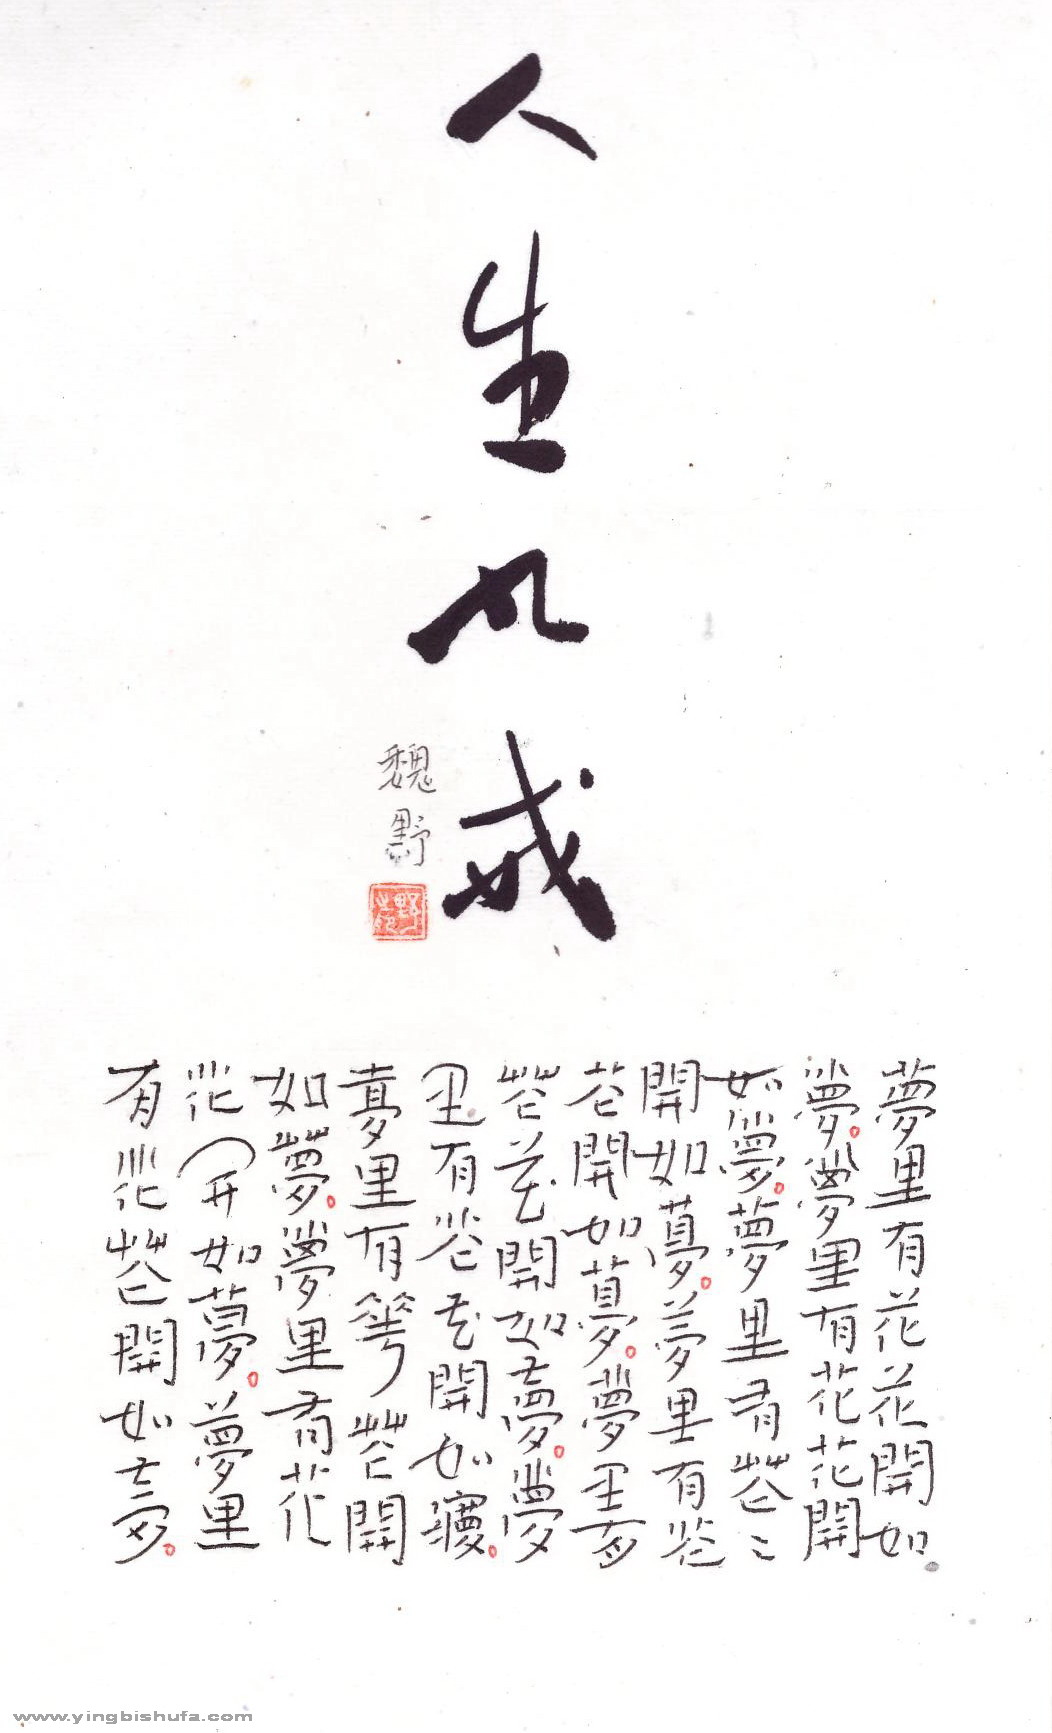 人生如戒
魏野
夢里有花花開如
夢。夢里有花花開
如夢。夢里有花〻
開如夢。夢里有花
花開如夢。夢里有
花花開如夢。夢
里有花花開如夢。
夢里有華花開
如夢。夢里有花
花開如夢。夢里
有花花開如夢。
www.yingbishufa.com